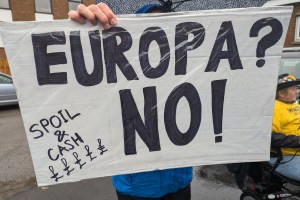 EUROPA?
NO!
SPOIL
&
CASH
£££££